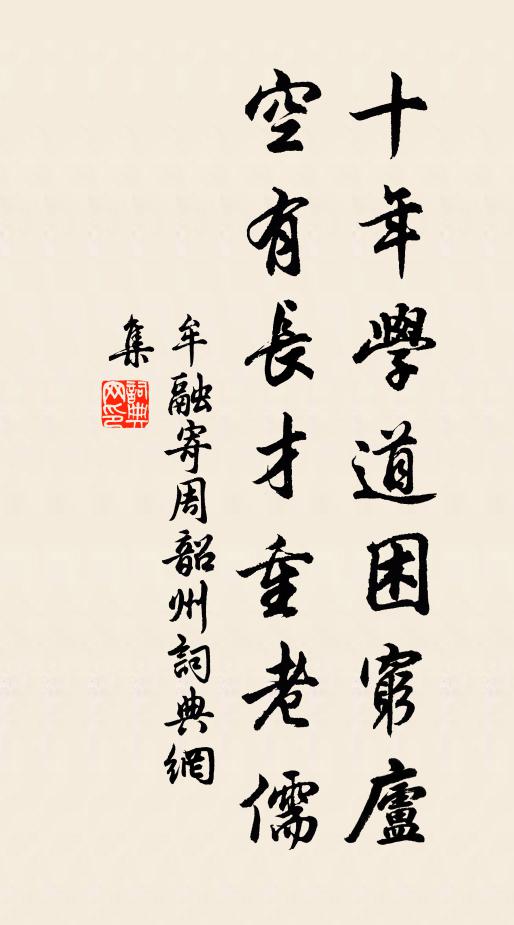 十年學道困窮廬
空有長才重老儒
牟融寄周韶州詞典網
集
詞典網印